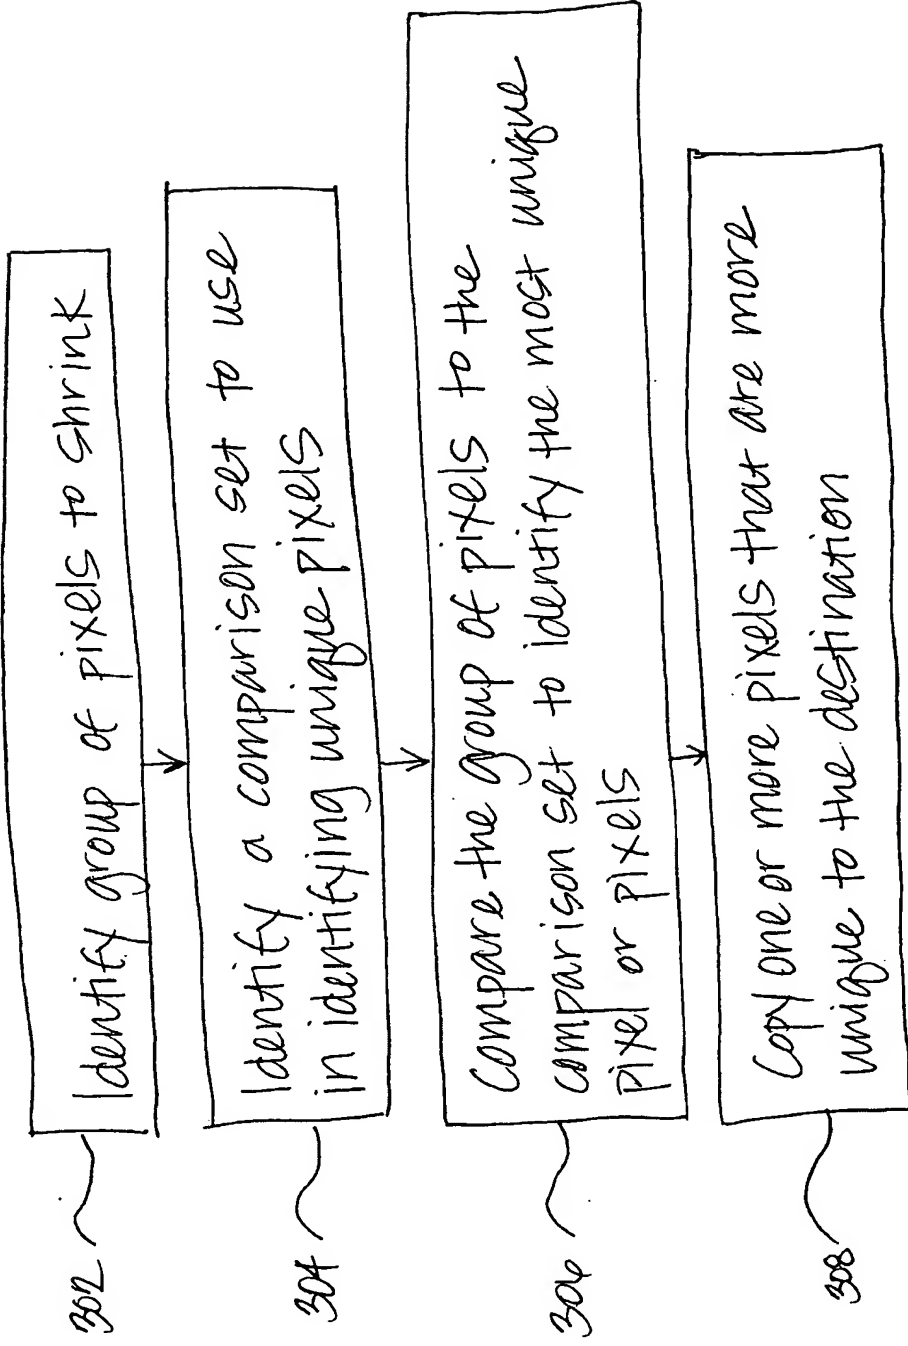 302
Identify group of pixels to shrink
304
Identify a comparison set to use
in identifying unique pixels
306
Compare the group of pixels to the
comparison set to identify the most unique
pixel or pixels
308
Copy one or more pixels that are more
unique to the destination